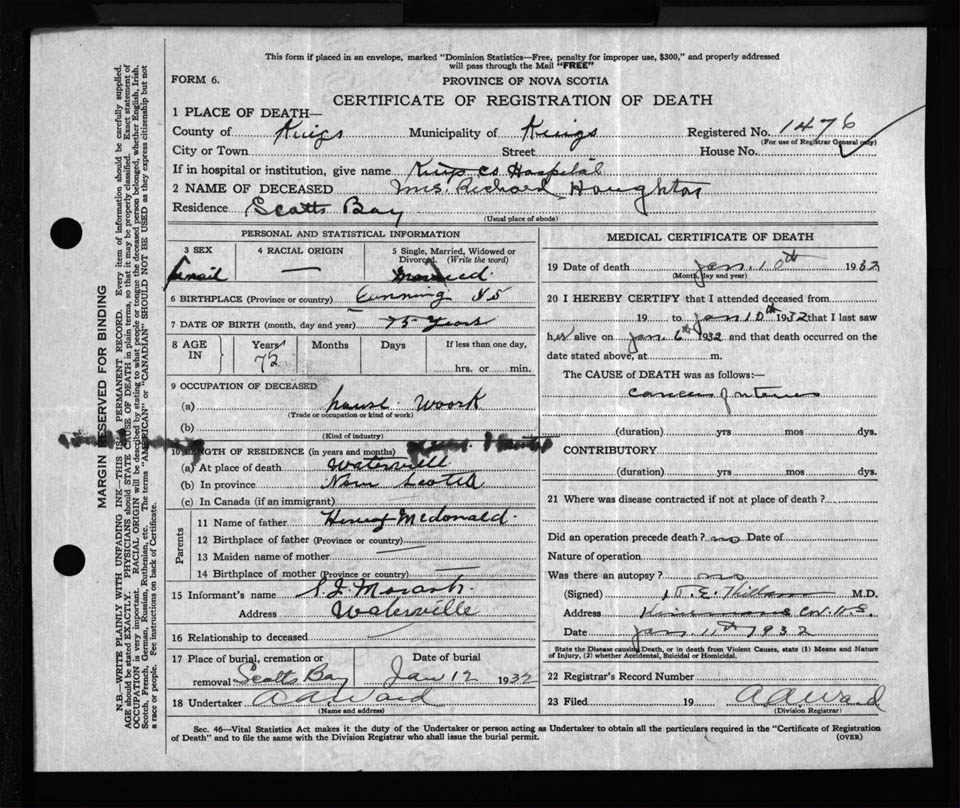 This form if placed in an envelope, marked "Dominion Statistics—Free, penalty for improper use, $300," and properly addressed
will pass through the Mail "FREE"
FORM 6.
PROVINCE OF NOVA SCOTIA
CERTIFICATE OF REGISTRATION OF DEATH
1 PLACE OF DEATH—
County of Kings Municipality of Kings Registered No. 1476
(For use of Registrar General only)
City or Town Street House No.
If in hospital or institution, give name Kings Co Hospital
2 NAME OF DECEASED Mrs. Richard Houghton
Residence Scotts Bay
(Usual place of abode)
PERSONAL AND STATISTICAL INFORMATION
3 SEX 4 RACIAL ORIGIN 5 Single, Married, Widowed or
Divorced. (Write the word)
— Married.
6 BIRTHPLACE (Province or country) Canning N S
7 DATE OF BIRTH (month, day and year) 75 Years
8 AGE IN Years Months Days If less than one day,
72 hrs. or min.
9 OCCUPATION OF DECEASED
(a) house Woork
(Trade or occupation or kind of work)
(b)
(Kind of industry)
10 LENGTH OF RESIDENCE (in years and months)
(a) At place of death Waterville
(b) In province Nova Scotia
(c) In Canada (if an immigrant)
Parents
11 Name of father Henery McDonald
12 Birthplace of father (Province or country)
13 Maiden name of mother —
14 Birthplace of mother (Province or country) —
15 Informant's name
Address Waterville
16 Relationship to deceased
17 Place of burial, cremation or Date of burial
removal Scotts Bay Jan 12 1932
18 Undertaker A A Ward
(Name and address)
MEDICAL CERTIFICATE OF DEATH
19 Date of death Jan. 10th 1932
(Month, day and year)
20 I HEREBY CERTIFY that I attended deceased from
19 to Jan 10th 1932 that I last saw
her alive on Jan. 6th 1932 and that death occurred on the
date stated above, at m.
The CAUSE of DEATH was as follows:—
cancer of uterus
(duration) yrs mos dys.
CONTRIBUTORY
(duration) yrs mos dys.
21 Where was disease contracted if not at place of death?
Did an operation precede death? no Date of
Nature of operation
Was there an autopsy? no
(Signed) M.D.
Address
Date Jan. 11th 1932
State the Disease causing Death, or in death from Violent Causes, state (1) Means and Nature
of Injury, (2) whether Accidental, Suicidal or Homicidal.
22 Registrar's Record Number
23 Filed 19 A A Ward
(Division Registrar)
Sec. 46—Vital Statistics Act makes it the duty of the Undertaker or person acting as Undertaker to obtain all the particulars required in the "Certificate of Registration
of Death" and to file the same with the Division Registrar who shall issue the burial permit. (OVER)
MARGIN RESERVED FOR BINDING
N.B.—WRITE PLAINLY WITH UNFADING INK—THIS IS A PERMANENT RECORD. Every item of information should be carefully supplied.
AGE should be stated EXACTLY. PHYSICIANS should STATE CAUSE OF DEATH in plain terms, so that it may be properly classified. Exact statement of
OCCUPATION is very important. RACIAL ORIGIN will be described by stating to what people or tongue the deceased person belonged, whether English, Irish,
Scotch, French, German, Russian, Ruthenian, etc. The terms "AMERICAN" or "CANADIAN" SHOULD NOT BE USED as they express citizenship but not
a race or people. See instructions on back of Certificate.